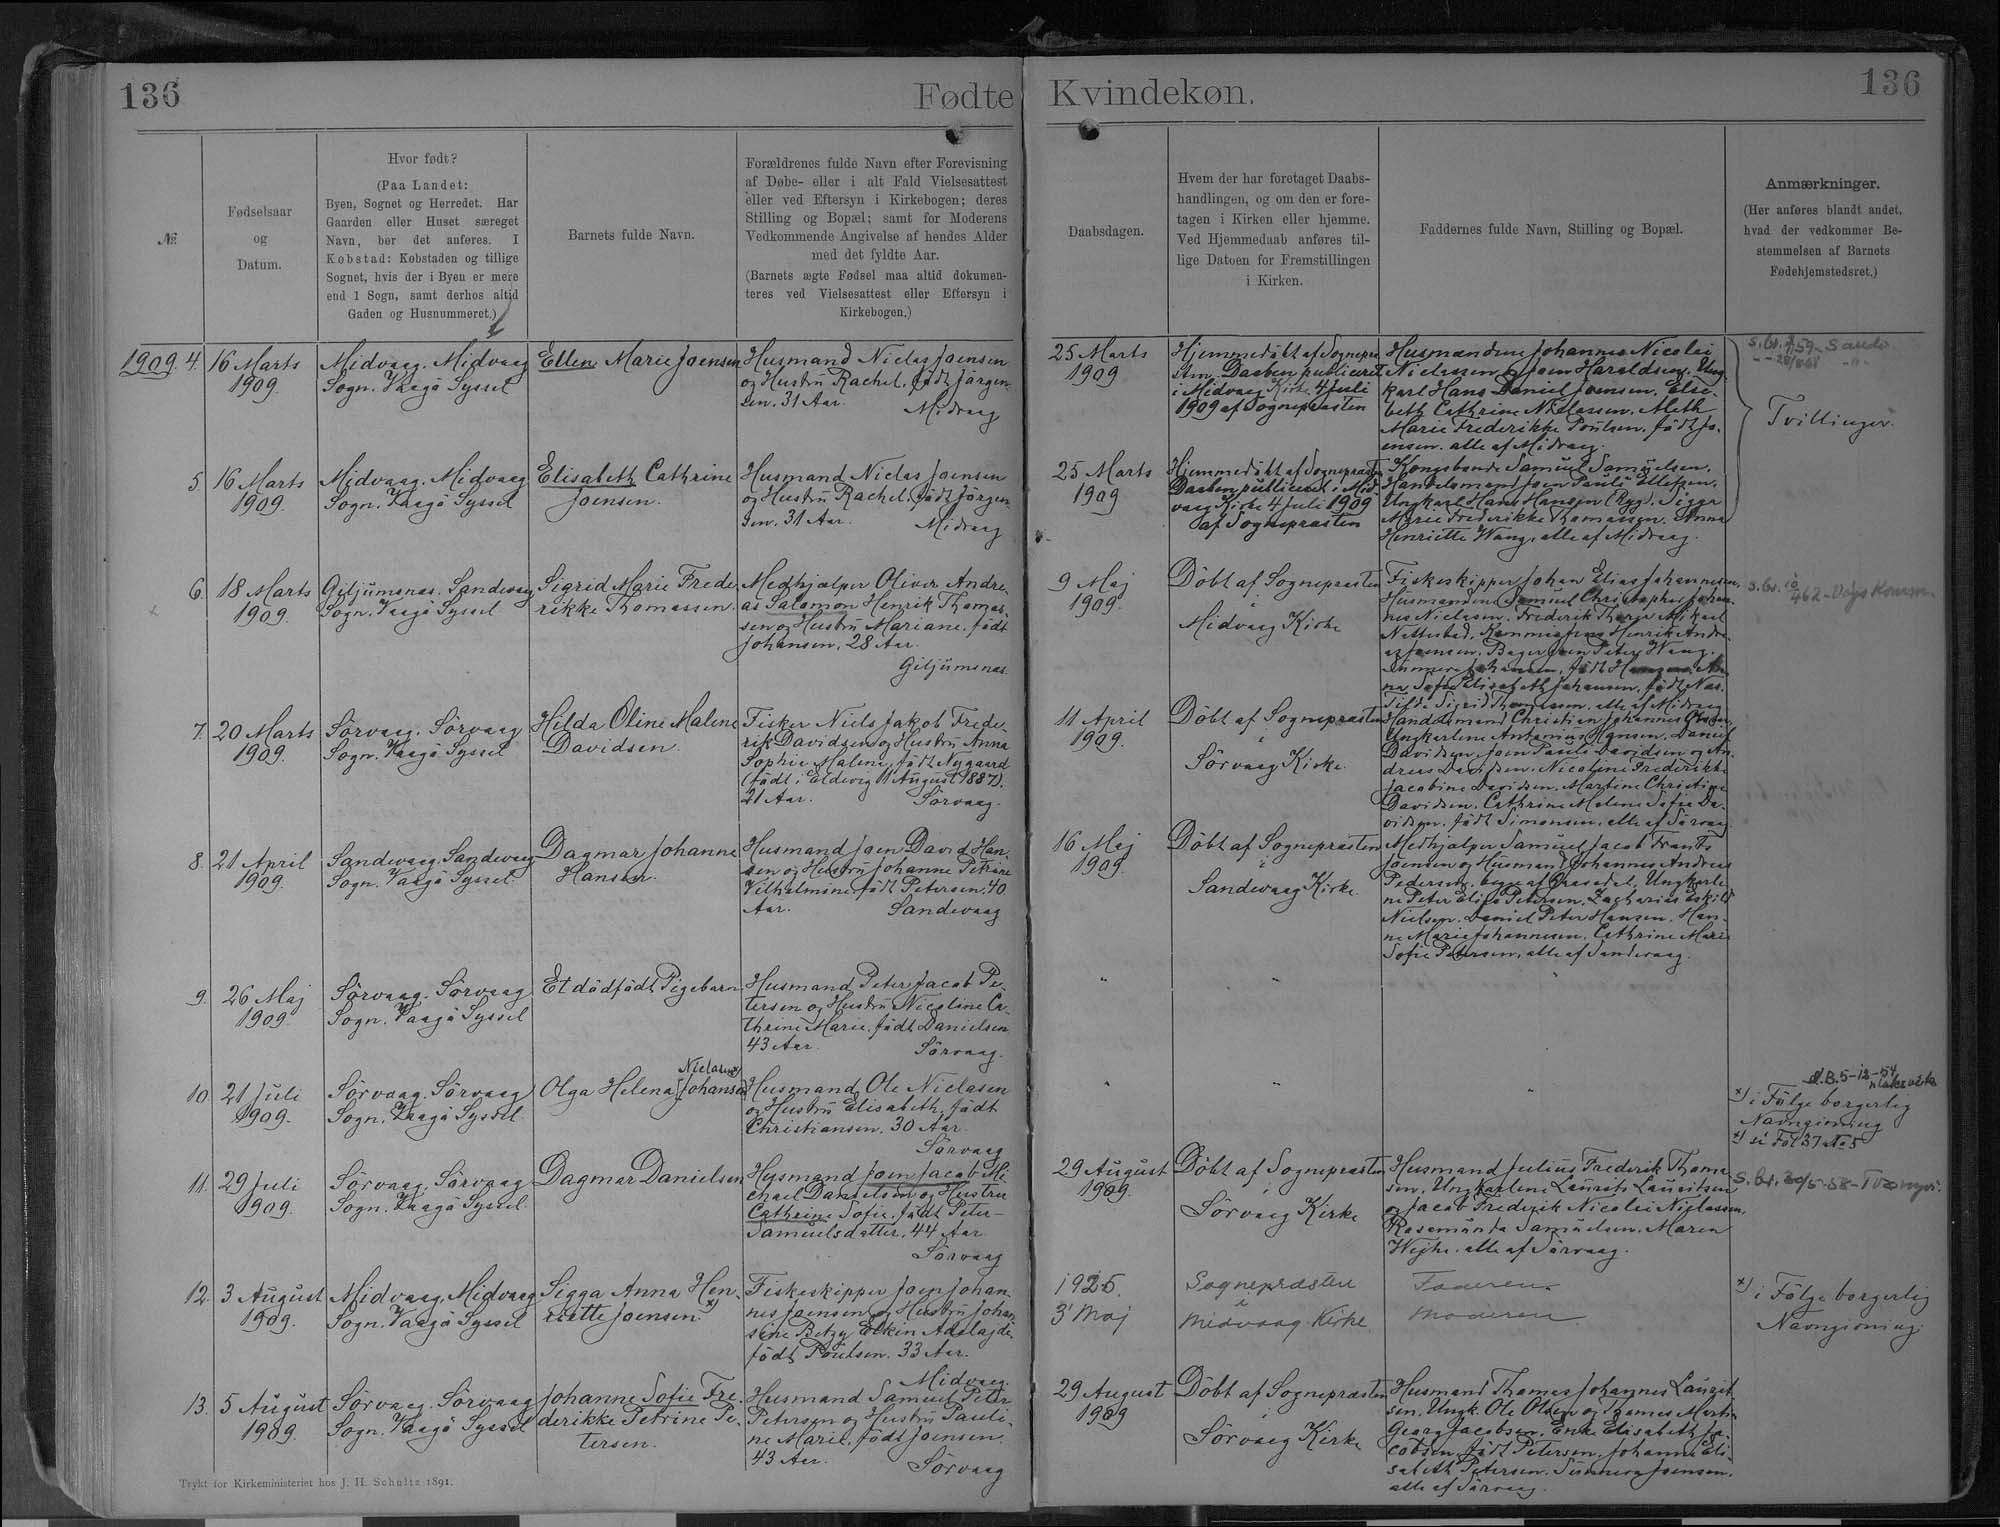 136
Fødte
Kvindekøn.
136
№
Fødselsaar
og
Datum.
Hvor født?
(Paa Landet:
Byen, Sognet og Herredet. Har
Gaarden eller Huset særeget
Navn, bør det anføres. I
Købstad: Købstaden og tillige
Sognet, hvis der i Byen er mere
end 1 Sogn, samt derhos altid
Gaden og Husnummeret.)
Barnets fulde Navn.
Forældrenes fulde Navn efter Forevisning
af Døbe- eller i alt Fald Vielsesattest
eller ved Eftersyn i Kirkebogen; deres
Stilling og Bopæl; samt for Moderens
Vedkommende Angivelse af hendes Alder
med det fyldte Aar.
(Barnets ægte Fødsel maa altid dokumen-
teres ved Vielsesattest eller Eftersyn i
Kirkebogen.)
Daabsdagen.
Hvem der har foretaget Daabs-
handlingen, og om den er fore-
tagen i Kirken eller hjemme.
Ved Hjemmedaab anføres til-
lige Datoen for Fremstillingen
i Kirken.
Faddernes fulde Navn, Stilling og Bopæl.
Anmærkninger.
(Her anføres blandt andet,
hvad der vedkommer Be-
stemmelsen af Barnets
Fødehjemstedsret.)
1909. 4.
16 Marts
1909.
Midvaag. Midvaag
Sogn. Vaagö Syssel
Ellen Marie Joensen
Husmand Niclas Joensen
og Hustru Rachel, födt Jörgen-
sen. 31 Aar.
Midvaag
25 Marts
1909
Hjemmedöbt af Sognepræ-
sten. Daaben publiceret
i Midvaag Kirke 4 Juli
1909 af Sognepræsten
Husmændene Johannes Nicolai
Nielassen, Joen Haraldsen, Ung-
karl Hans Daniel Joensen, Elsi-
beth Cathrine Nielassen,
Marie Frederikke Poulsen, födt Jo-
ensen, alle af Midvaag.
Tvillinger.
5.
16 Marts
1909.
Midvaag. Midvaag
Sogn. Vaagö Syssel
Elisabeth Cathrine
Joensen.
Husmand Niclas Joensen
og Hustru Rachel, födt Jörgen-
sen. 31 Aar.
Midvaag
25 Marts
1909
Hjemmedöbt af Sognepræsten
Daaben publiceret i Mid-
vaag Kirke 4 Juli 1909
af Sognepræsten
Kongsbonde Samuel Samuelsen,
Handelsmand Joen Pauli Ellefsen,
Ungkarl Hans Hansen, Sigga
Marie Frederikke Thomassen, Anna
Henriette Wang, alle af Midvaag.
6.
18 Marts
1909.
Giljumsnæs. Sandevaag
Sogn. Vaagö Syssel
Sigrid Marie Frede-
rikke Thomassen.
Medhjælper Oliver Andre-
as Salamon Henrik Thomas-
sen og Hustru Mariane, födt
Johansen, 28 Aar.
Giljumsnæs.
9 Maj
1909.
Döbt af Sognepræsten
i
Midvaag Kirke
Fiskeskipper Johan Elias Johannesen,
Husmændene Samuel Christopher Johan-
nes Nielasen, Frederik Mikael
Henrik Andre-
as Joensen, Bager Peter Wang,
Johansen, födt
Elisabeth Johansen, födt Næs.
Sigrid Thomassen, alle af Midvaag
7.
20 Marts
1909.
Sörvaag. Sörvaag
Sogn. Vaagö Syssel
Hilda Oline Malene
Davidsen.
Fisker Niels Jakob Frede-
rik Davidsen og Hustru Anna
Sophie Malene, födt Nygaard
(födt i Eldevig 11 August 1887).
21 Aar.
Sörvaag.
11 April
1909.
Döbt af Sognepræsten
i
Sörvaag Kirke.
Handelsmand Christian Johannes
Ungkarlene Antonius Hansen, Daniel
Davidsen, Joen Pauli Davidsen og An-
dreas Davidsen, Nicoline Frederikke
Jacobine Davidsen, Martine Christine
Davidsen, Cathrine Malene Sofie Da-
vidsen, födt Simonsen, alle af Sörvaag
8.
21 April
1909.
Sandevaag. Sandevaag
Sogn. Vaagö Syssel.
Dagmar Johanne
Hansen.
Husmand Joen David Han-
sen og Hustru Johanne Petrine
Vilhelmine, födt Petersen, 40
Aar.
Sandevaag
16 Maj
1909.
Döbt af Sognepræsten
i
Sandevaag Kirke.
Medhjælper Samuel Jacob Frants
Joensen og Husmand Johannes Andreas
Pedersen, begge af Gaasedal, Ungkarle-
ne Peter Elias Petersen, Zacharias Eskild
Nielsen, Daniel Peter Hansen, Han-
ne Marie Johannesen, Cathrine Marie
Sofie Petersen, alle af Sandevaag.
9.
26 Maj
1909.
Sörvaag. Sörvaag
Sogn. Vaagö Syssel
Et dödfödt Pigebarn
Husmand Peter Jacob Pe-
tersen og Hustru Nicoline Ca-
thrine Marie, födt Danielsen
43 Aar.
Sörvaag.
" " "
10.
21 Juli
1909.
Sörvaag. Sörvaag
Sogn. Vaagö Syssel.
Nielasen x)
Olga Helena Johansen
Husmand Ole Nielasen
og Hustru Elisabeth, födt
Christiansen. 30 Aar.
Sörvaag
" " "
x) i Fölge borgerlig
Navngivning
11.
29 Juli
1909.
Sörvaag. Sörvaag
Sogn. Vaagö Syssel.
Dagmar Danielsen
Husmand Joen Jacob Mi-
chael Danielsen og Hustru
Cathrine Sofie, födt Peter-
Samuelsdatter, 44 Aar.
Sörvaag
29 August
1909.
Döbt af Sognepræsten
i
Sörvaag Kirke
Husmand Julius Frederik Thoma-
sen, Ungkarlene Laurits Lauritsen
og Jacob Frederik Nicolai Nielassen,
Rosamunda Samuelsen, Maren
Wejhe, alle af Sörvaag.
12.
3 August
1909.
Midvaag. Midvaag
Sogn. Vaagö Syssel
Sigga Anna Hen-
riette Joensen x)
Fiskeskipper Joen Johan-
nes Joensen og Hustru Johan-
sine Betzy Elkin Adelajde,
födt Poulsen. 33 Aar.
Midvaag.
1925.
3' Maj
Sognepræsten
i
Midvaag Kirke
Faderen.
Moderen
x) i Fölge borgerlig
Navngivning.
13.
5 August
1909.
Sörvaag. Sörvaag
Sogn. Vaagö Syssel
Johanne Sofie Fre-
derikke Petrine Pe-
tersen.
Husmand Samuel Peter
Petersen og Hustru Pauli-
ne Marie, födt Joensen.
43 Aar.
Sörvaag
29 August
1909
Döbt af Sognepræsten
i
Sörvaag Kirke
Husmand Thomas Johannes Laurit-
sen, Ungk. Ole Olsen og Thomas Martin
Georg Jacobsen, Enke Elisabeth Ja-
cobsen, födt Petersen, Johanne Eli-
sabeth Petersen, Sunneva Joensen,
alle af Sörvaag.
Trykt for Kirkeministeriet hos J. H. Schultz 1891.